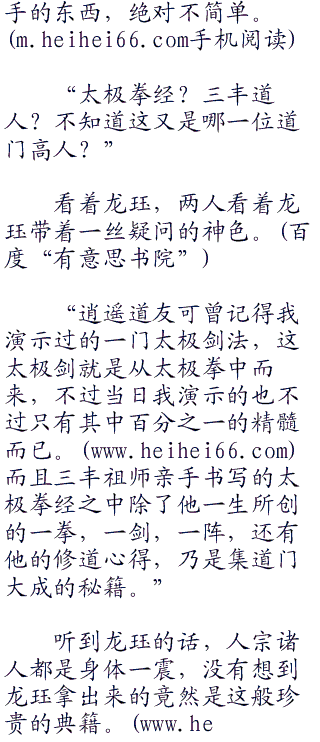 手的东西，绝对不简单。
(m.heihei66.com手机阅读)
“太极拳经？三丰道
人？不知道这又是哪一位道
门高人？”
看着龙珏，两人看着龙
珏带着一丝疑问的神色。(百
度“有意思书院”)
“逍遥道友可曾记得我
演示过的一门太极剑法，这
太极剑就是从太极拳中而
来，不过当日我演示的也不
过只有其中百分之一的精髓
而已。(www.heihei66.com)
而且三丰祖师亲手书写的太
极拳经之中除了他一生所创
的一拳，一剑，一阵，还有
他的修道心得，乃是集道门
大成的秘籍。”
听到龙珏的话，人宗诸
人都是身体一震，没有想到
龙珏拿出来的竟然是这般珍
贵的典籍。(www.he